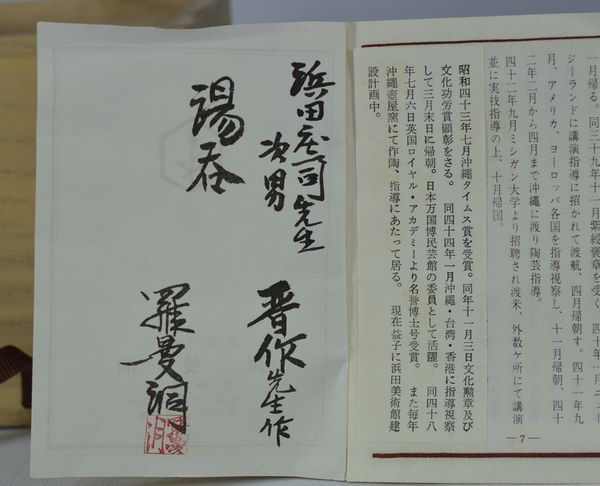 一月帰る。同三十九年十一月紫綬褒章を受く。四十年一月ニュー
ジーランドに講演指導に招かれて渡航、四月帰朝す。四十一年九
月、アメリカ、ヨーロッパ各国を指導視察し、十一月帰朝、四十
二年二月から四月まで沖縄に渡り陶芸指導。
四十二年九月ミシガン大学より招聘され渡米、外数ヶ所にて講演
並に実技指導の上、十月帰国。
昭和四十三年七月沖縄タイムス賞を受賞。同年十一月三日文化勲章及び
文化功労賞顕彰をさる。 同四十四年一月沖縄・台湾・香港に指導視察
して三月末日に帰朝。日本万国博民芸館の委員として活躍。 同四十八
年七月六日英国ロイヤル・アカデミーより名誉博士号受賞。 また毎年
沖縄壺屋窯にて作陶、指導にあたって居る。 現在益子に浜田美術館建
設計画中。
—7—
浜田庄司先生
次男
晋作先生作
湯呑
羅曼洞